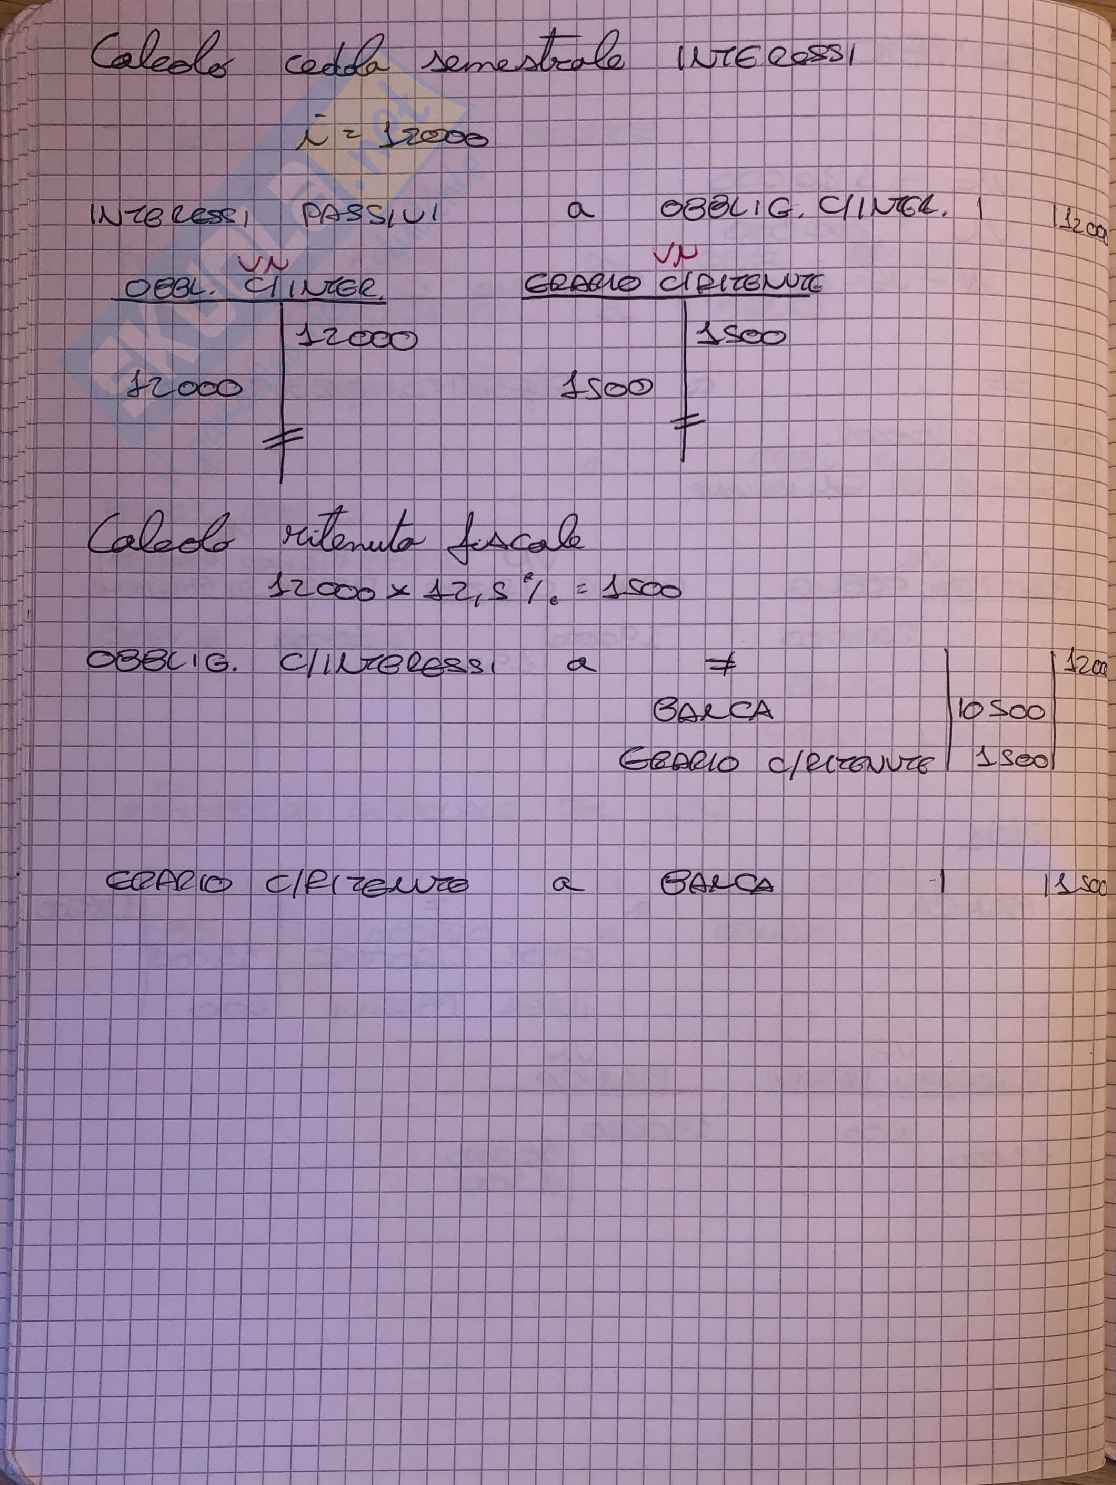 Calcolo cedola semestrale INTERESSI
i = 12000
INTERESSI PASSIVI a OBBLIG. C/INTER. | |1200
VN VN
OBBL. C/INTER. ERARIO C/RITENUTE
12000 1500
12000 1500
Calcolo ritenuta fiscale
12000 x 12,5% = 1500
OBBLIG. C/INTERESSI a ≠ 1200
BANCA 10500
ERARIO C/RITENUTE 1500
ERARIO C/RITENUTE a BANCA | |1500
SKUOLA.net